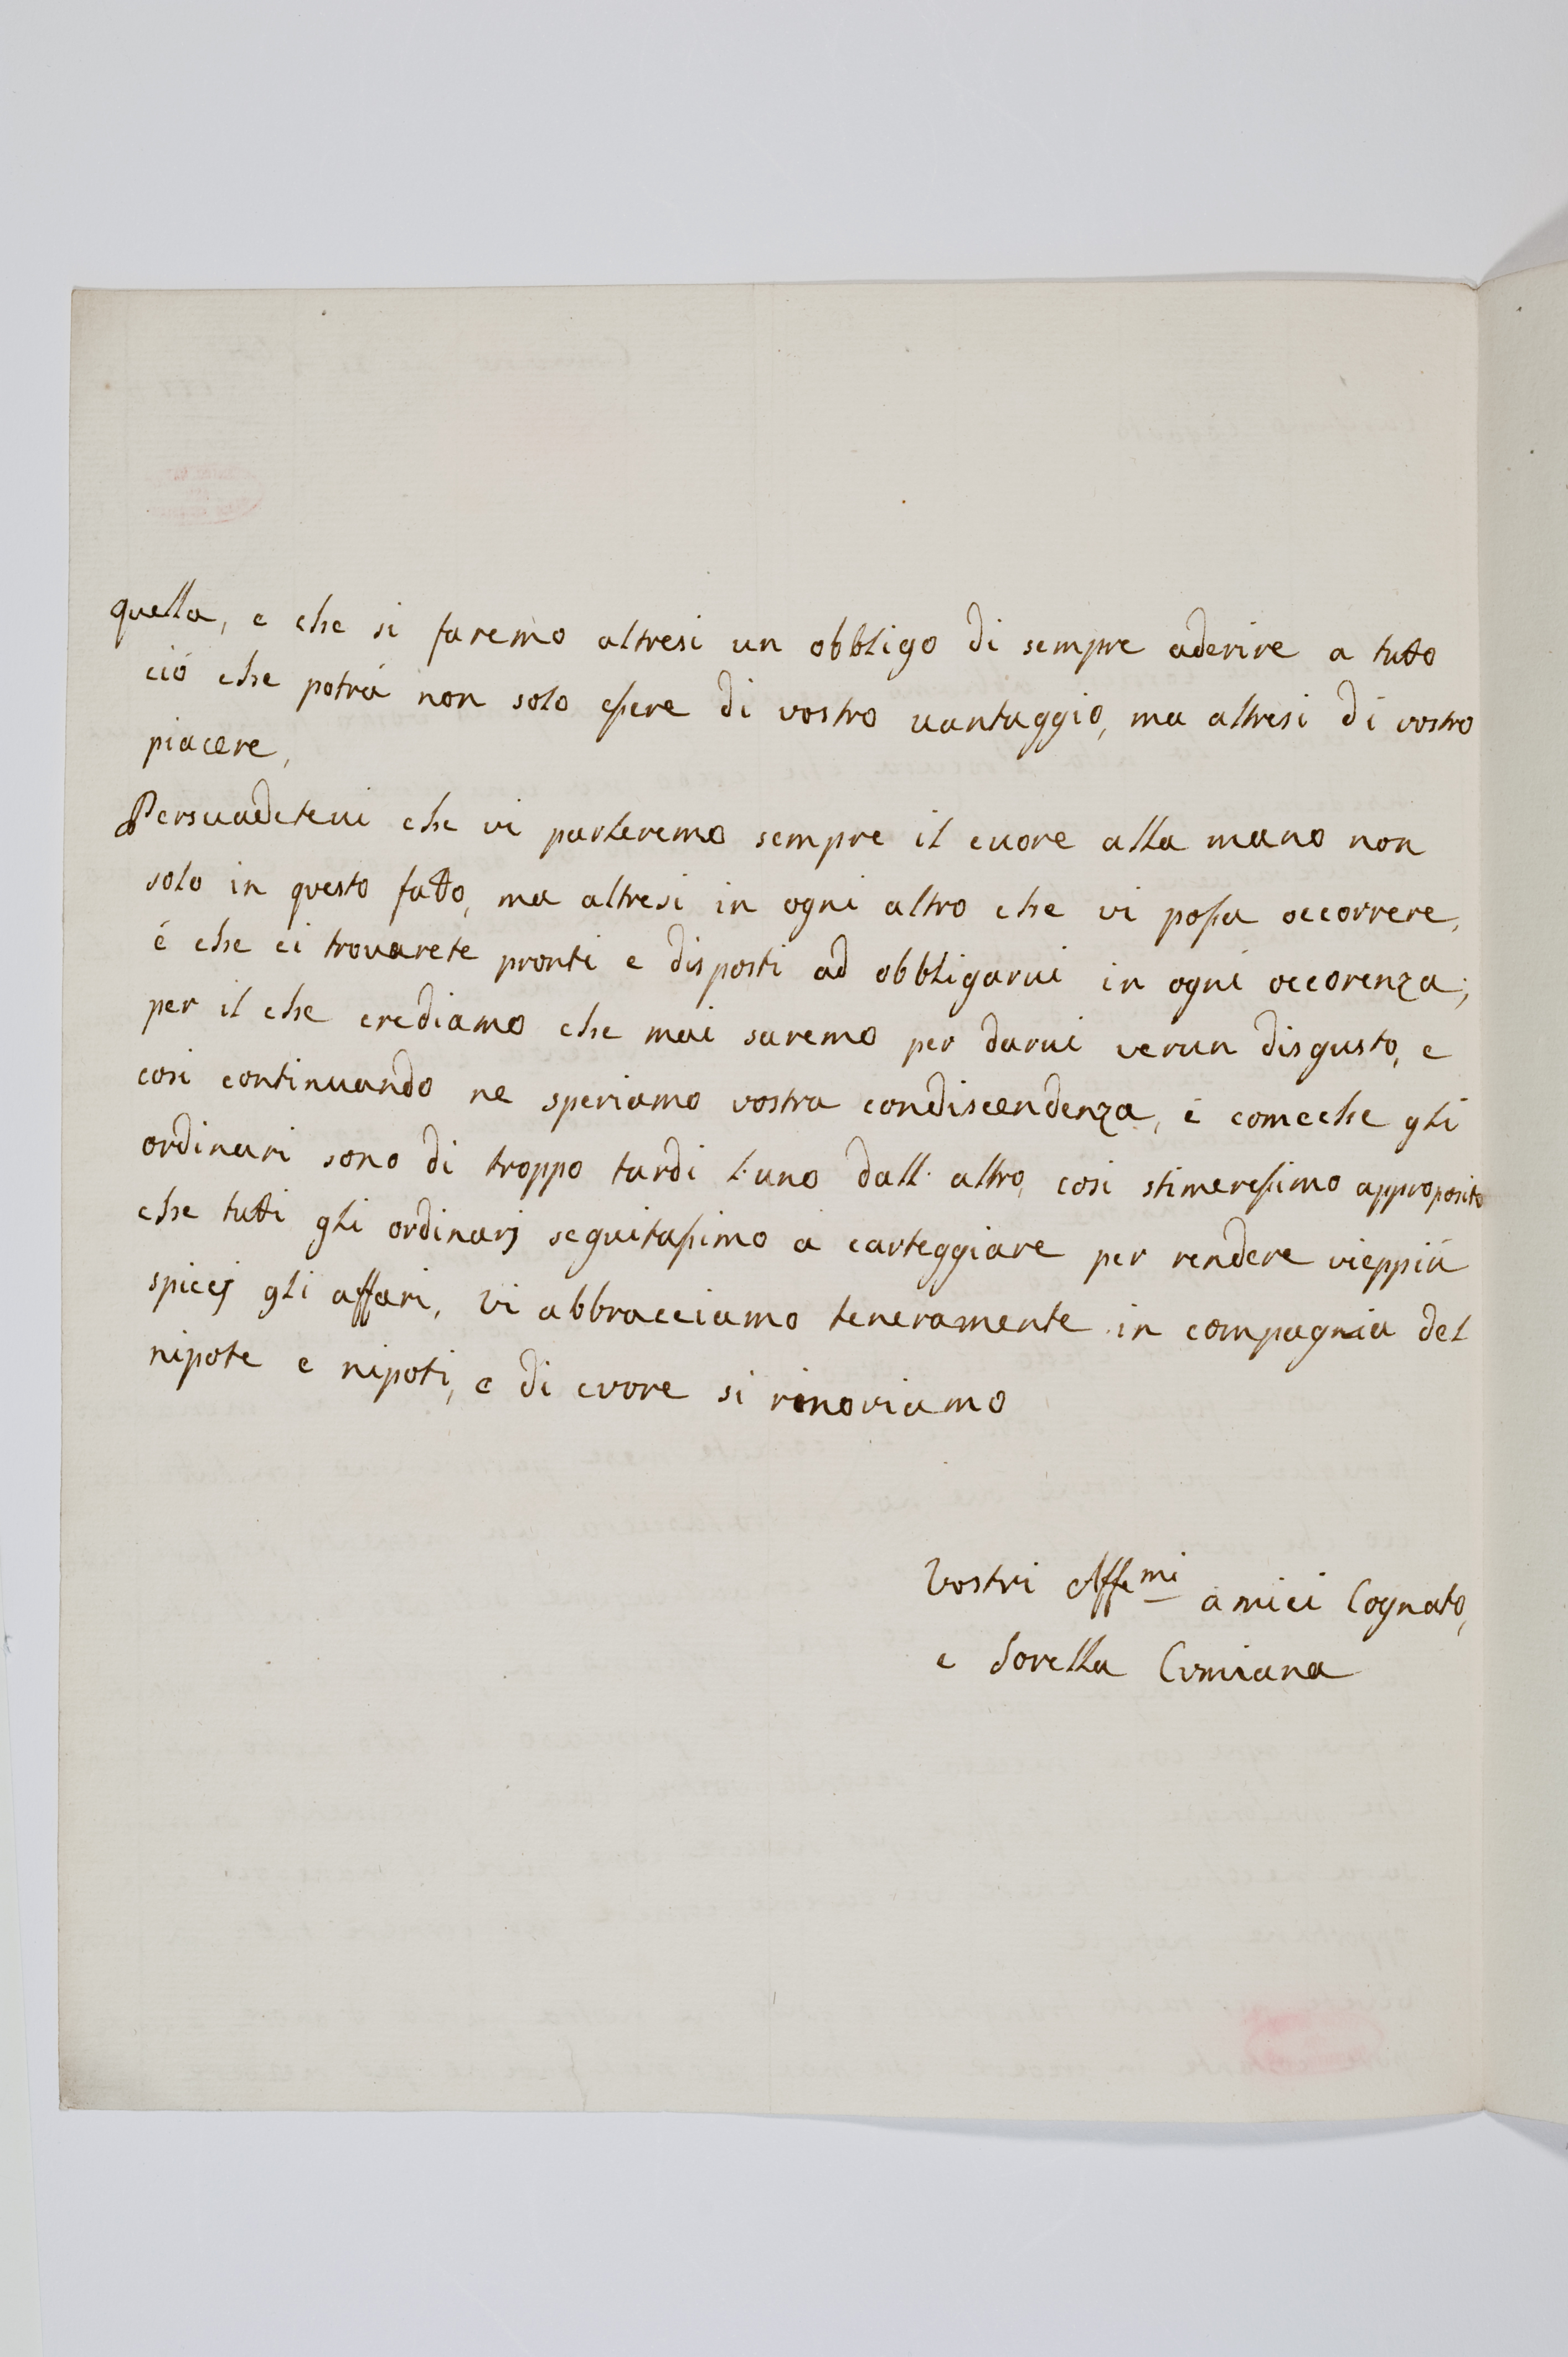 quella, e che si faremo altresi un obbligo di sempre aderire a tutto
ció che potrá non solo essere di vostro vantaggio, ma altresi di vostro
piacere,
Persuadetevi che vi parleremo sempre il cuore alla mano non
solo in questo fatto, ma altresi in ogni altro che vi possa occorrere,
é che ci trovarete pronti e disposti ad obbligarvi in ogni occorenza;
per il che crediamo che mai saremo per darvi verun disgusto, e
cosi continuando ne speriamo vostra condiscendenza, é comecche gli
ordinari sono di troppo tardi l'uno dall' altro, cosi stimeressimo approposito
che tutti gli ordinarj seguitassimo a carteggiare per rendere vieppiú
spiccj gli affari, vi abbracciamo teneramente in compagnia del
nipote e nipoti, e di cuore si rinoviamo
Vostri Affe.mi amici Cognato,
e Sorella Cumiana